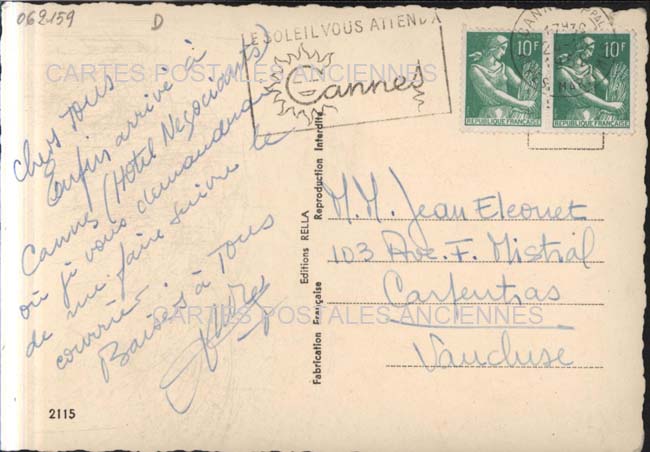 062159
D
LE SOLEIL VOUS ATTEND A
Cannes
10F
RÉPUBLIQUE FRANÇAISE
10F
RÉPUBLIQUE FRANÇAISE
CARTES POSTALES ANCIENNES
Chers Tous
Enfin arrivé à
Cannes (Hôtel Négociants)
où je vous demanderai
de me faire suivre le
courrier.
Baisers à Tous
Fabrication Française Editions RELLA Reproduction Interdite
M.M. Jean
103 Ave. F. Mistral
Carpentras
Vaucluse
CARTES POSTALES ANCIENNES
2115